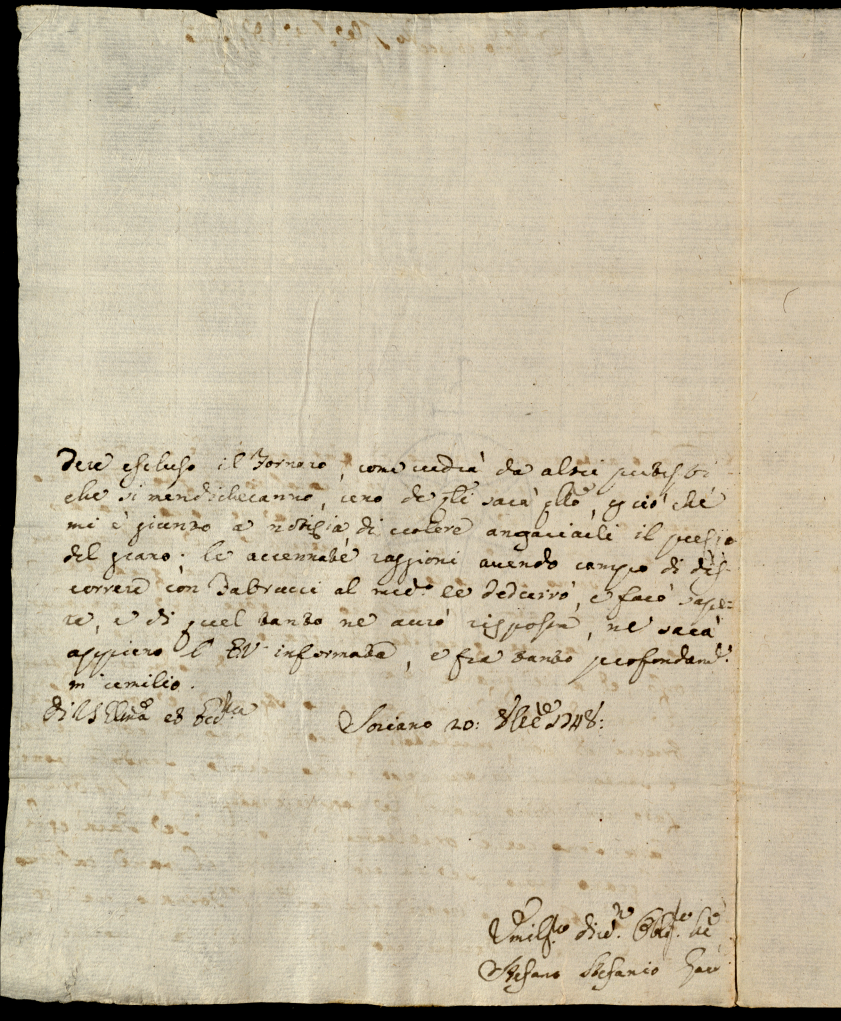 dere escluso il Fornaro, come vedrà da altri
che si mendicheranno, vero che gli sarà, e ciò che
mi è giunto a notizia di volere angariarli il prezzo
del grano: le accennate raggioni avendo campo di dis-
correre con Fabrucci al med.º le dedurrò, e farò sape-
re, e di quel tanto ne avrò risposta, ne sarà
appieno l'E.V. informata, e fra tanto profondam.e
m'umilio.
di V.S. Ill.ma ed Ecc.ma
Soriano 20: 8bre 1748:
Umil.mo div.mo Obbl.mo Se
Stefano Stefanio